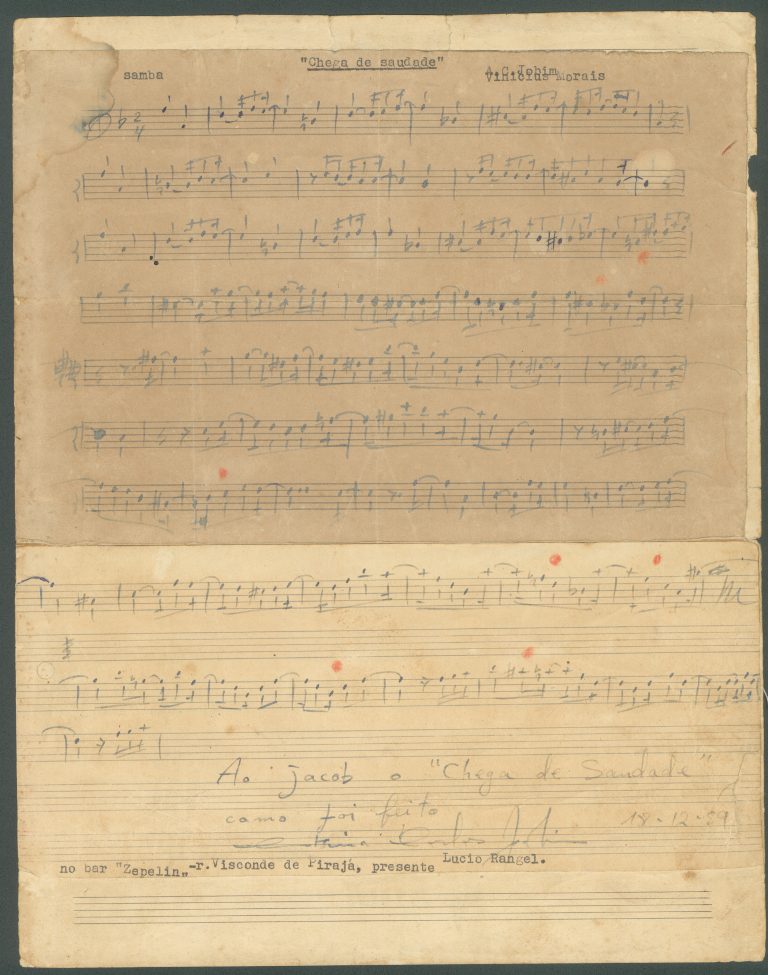 "Chega de saudade"
samba
A.C.Jobim
Vinicius Morais
Ao jacob o "Chega de Saudade"
como foi feito
18-12-59
Antonio Carlos Jobim
no bar "Zepelin"-r.Visconde de Pirajá, presente Lucio Rangel.